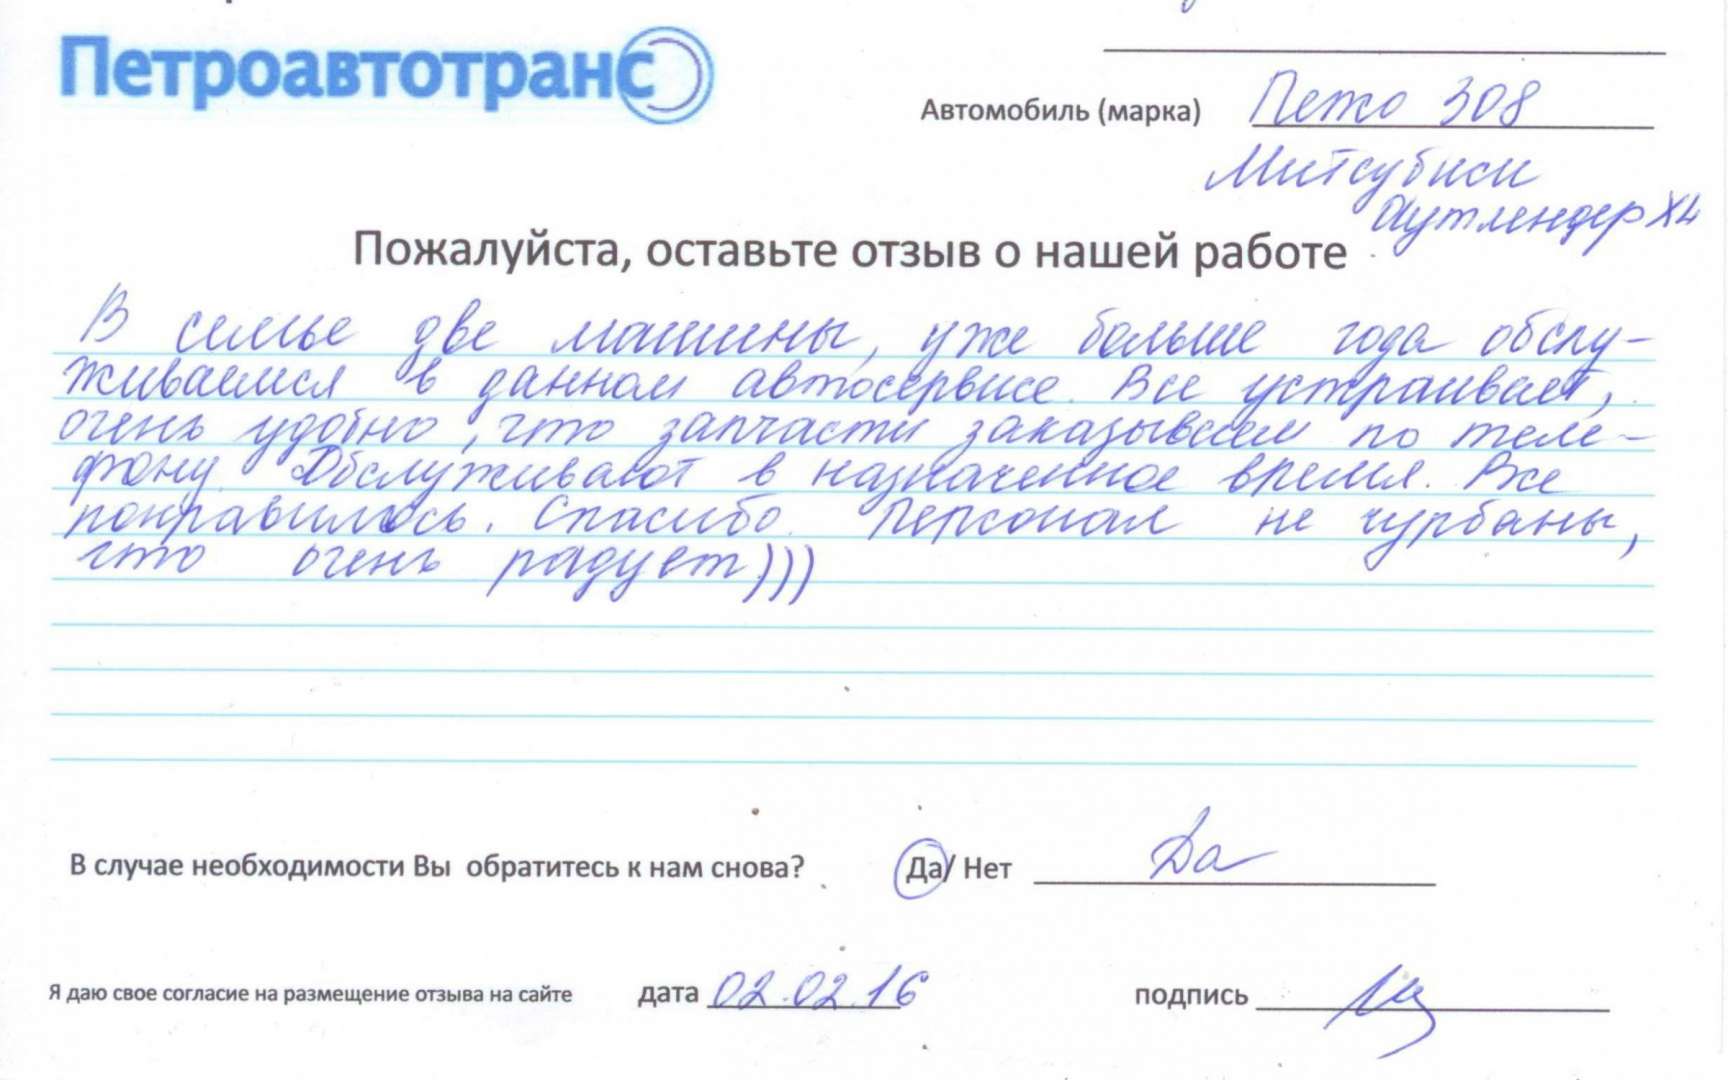 Петроавтотранс
Автомобиль (марка) Пежо 308
Митсубиси
аутлендер XL
Пожалуйста, оставьте отзыв о нашей работе
В семье две машины, уже больше года обслу-
живаемся в данном автосервисе. Все устраивает,
очень удобно, что запчасти заказываем по теле-
фону. Обслуживают в назначенное время. Все
понравилось. Спасибо. Персонал не чурбаны,
что очень радует)))
В случае необходимости Вы обратитесь к нам снова? Да/ Нет Да
Я даю свое согласие на размещение отзыва на сайте дата 02.02.16 подпись